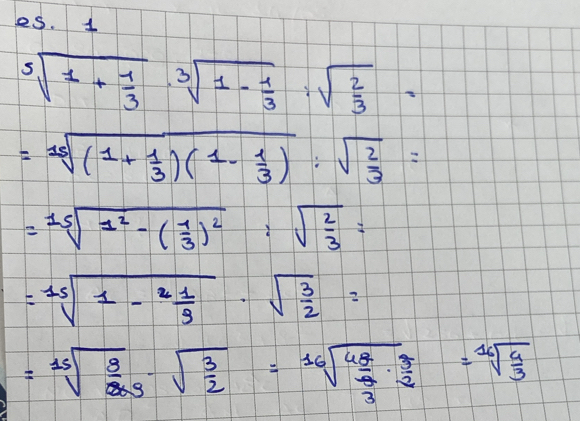 es. 1
⁵√(1 + 1/3) · ³√(1 - 1/3) : √(2/3) =
= ¹⁵√((1 + 1/3)(1 - 1/3)) : √(2/3) =
= ¹⁵√(1² - (1/3)²) : √(2/3) =
= ¹⁵√(1 - 1/9) · √(3/2) =
= ¹⁵√(8/9) · √(3/2) = ¹⁶√(8/9 · 3/2) = ¹⁶√(4/3)